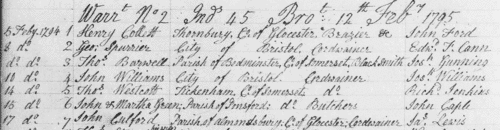 Warrt. No 2 Ind 45 Brot. 12th Feby 1795
5 Feby. 1794 1 Henry Collett Thornbury, Co. of Glocester Brazier &c John Ford
8 do. 2 Geo. Spurrier City of Bristol Cordwainer Edwd. T. Cann
do do. 3 Thos. Barwell Parish of Bedminster, C. of Somerset, Black Smith Jos. Gunning
10 do. 4 John Williams City of Bristol Cordwainer Jos. Williams
14 do 5 Thos. Westcott Tickenham, C. of Somerset do. Richd. Jenkins
15 do 6 John & Martha Green; Parish of do. Butchers John Cagle
17 do. 7 John Culford Parish of almondsbury C. of Glocester; Cordwainer Jas. Lewis